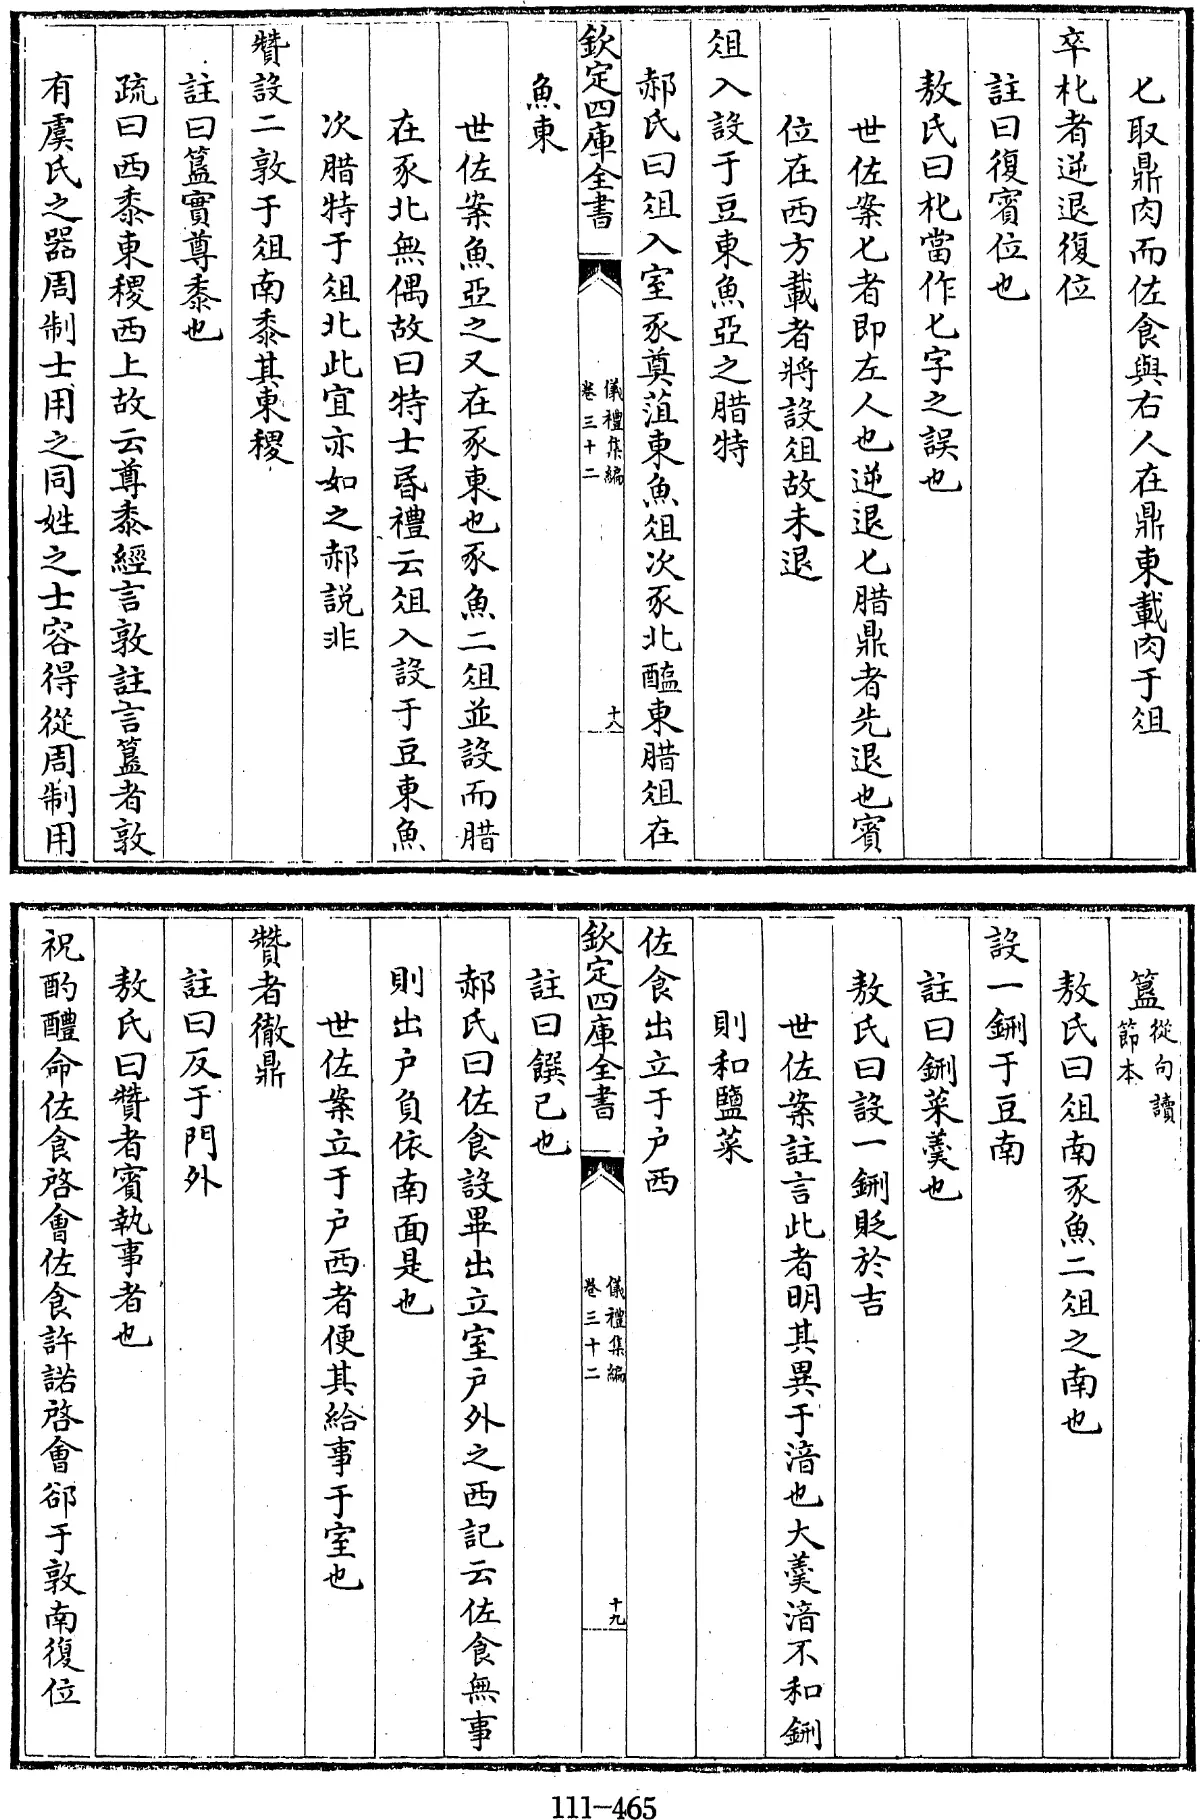 匕取鼎肉而佐食與右人在鼎東載肉于俎
卒朼者逆退復位
註曰復賓位也
敖氏曰朼當作匕字之誤也
世佐案匕者即左人也逆退匕腊鼎者先退也賓
位在西方載者將設俎故未退
俎入設于豆東魚亞之腊特
郝氏曰俎入室豕奠菹東魚俎次豕北醢東腊俎在
欽定四庫全書
儀禮集編
卷三十二
十八
魚東
世佐案魚亞之又在豕東也豕魚二俎並設而腊
在豕北無偶故曰特士昏禮云俎入設于豆東魚
次腊特于俎北此宜亦如之郝説非
贊設二敦于俎南黍其東稷
註曰簋實尊黍也
疏曰西黍東稷西上故云尊黍經言敦註言簋者敦
有虞氏之器周制士用之同姓之士容得從周制用
簋從句讀
節本
敖氏曰俎南豕魚二俎之南也
設一鉶于豆南
註曰鉶菜羹也
敖氏曰設一鉶貶於吉
世佐案註言此者明其異于湆也大羹湆不和鉶
則和鹽菜
佐食出立于户西
欽定四庫全書
儀禮集編
卷三十二
十九
註曰饌已也
郝氏曰佐食設畢出立室户外之西記云佐食無事
則出户負依南面是也
世佐案立于户西者便其給事于室也
贊者徹鼎
註曰反于門外
敖氏曰贊者賓執事者也
祝酌醴命佐食啓會佐食許諾啓會郤于敦南復位
111-465